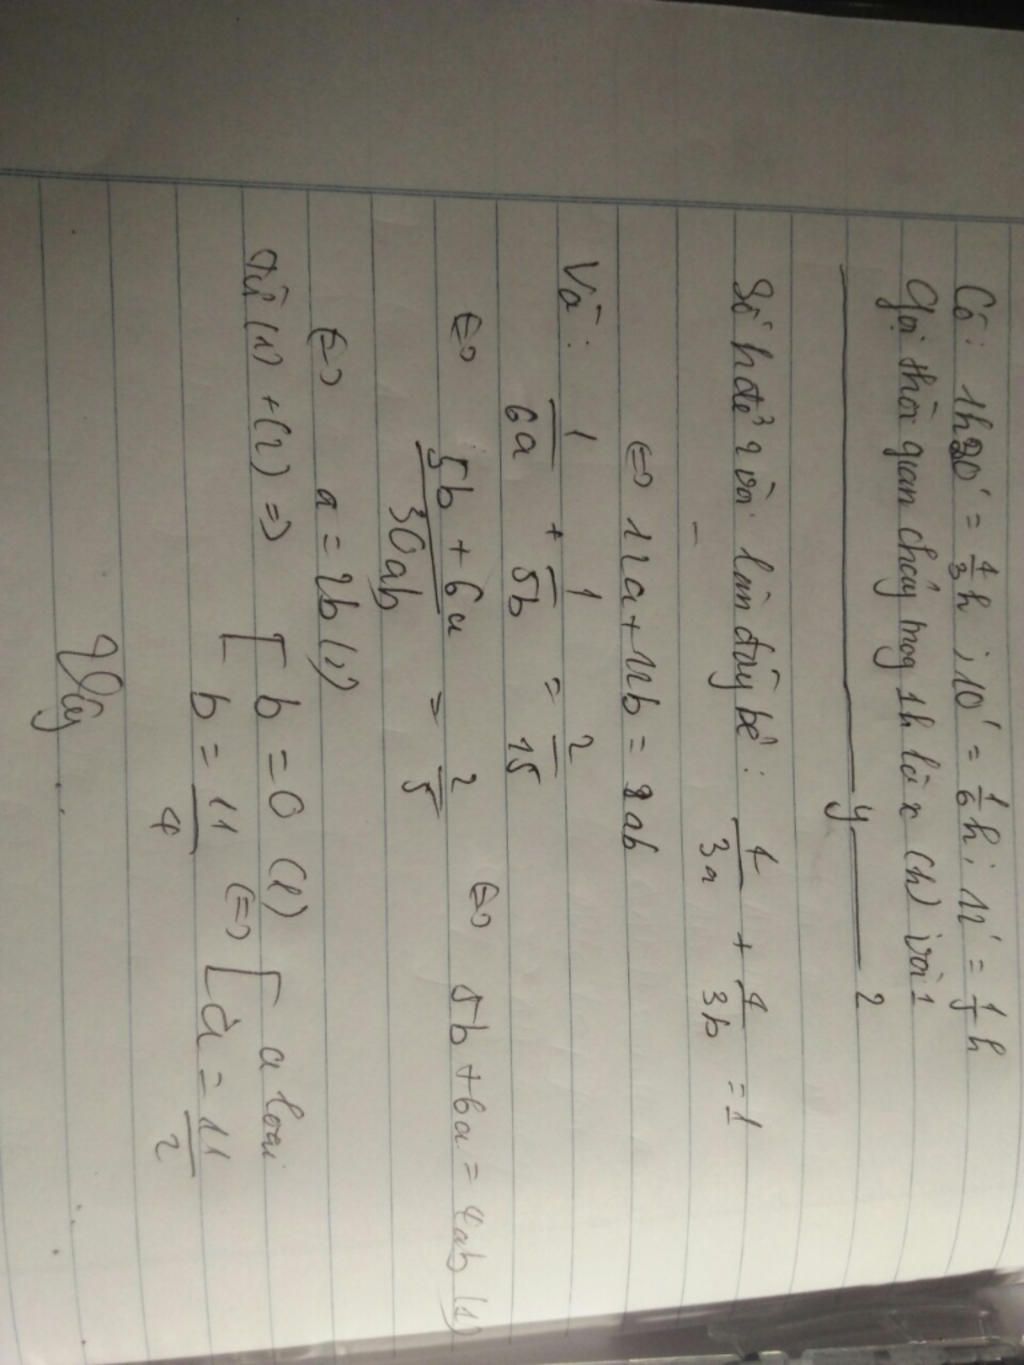 Có: 1h20' = 4/3 h ; 10' = 1/6 h ; 12' = 1/5 h
Gọi thời gian chảy trog 1h là x (h) vòi 1
y 2
Số h để 2 vòi làm đầy bể : 4/3a + 4/3b = 1
⇔ 12a + 12b = 9ab
Và : 1/6a + 1/5b = 2/15
⇔ 5b + 6a / 30ab = 2/15 ⇔ 5b + 6a = 4ab (1)
⇔ a = 2b (2)
Từ (1) + (2) ⇒ [ b = 0 (l) ⇔ [ a loại
b = 11/4 a = 11/2
Vậy ...